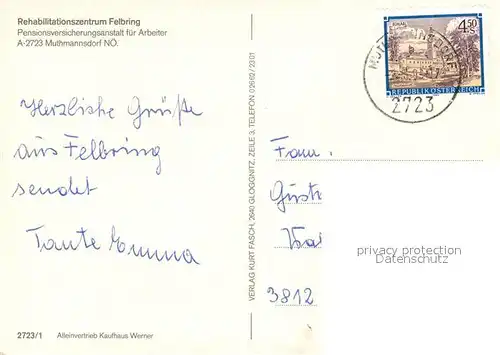 Rehabilitationszentrum Felbring
Pensionsversicherungsanstalt für Arbeiter
A-2723 Muthmannsdorf NÖ.
4.50
S
REPUBLIK ÖSTERREICH
2723
Herzliche Grüße
aus Felbring
sendet
Tante Emma
VERLAG KURT FASCH, 2640 GLOGGNITZ, ZEILE 3, TELEFON 02662/2301
Fam.
3812
privacy protection
Datenschutz
2723/1 Alleinvertrieb Kaufhaus Werner